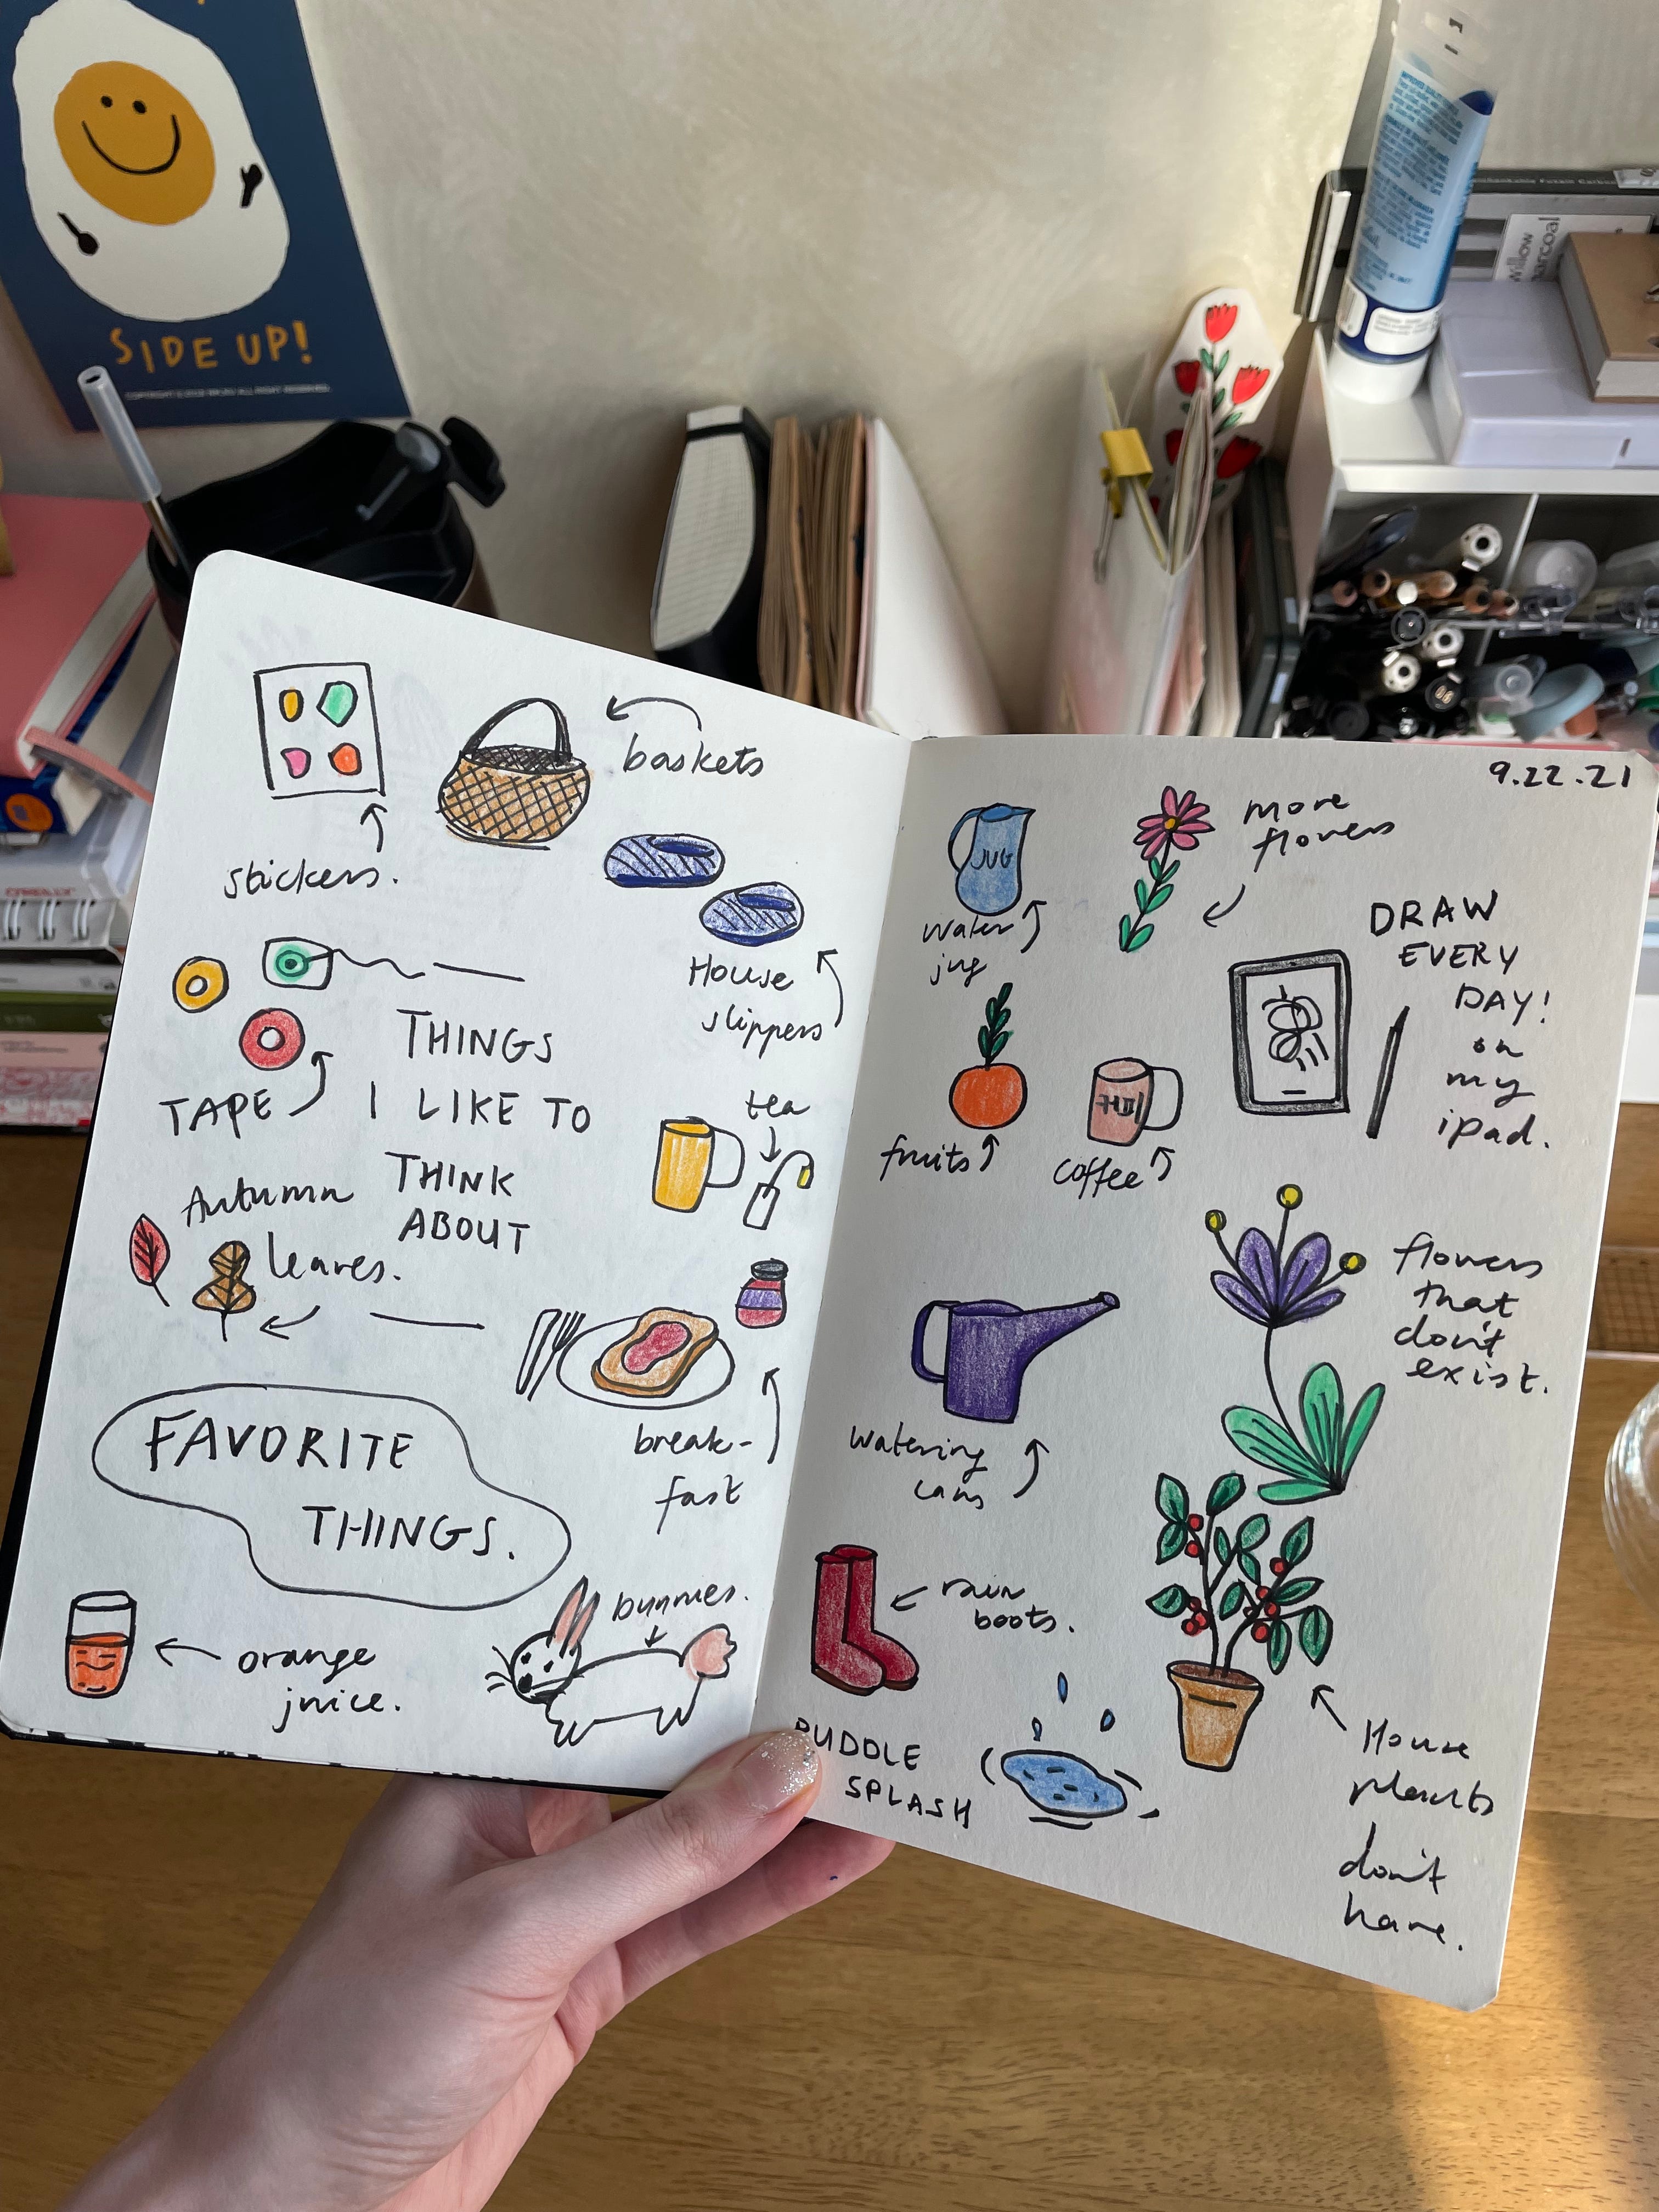 SIDE UP!
willow
charcoal
stickers.
baskets
House
slippers
TAPE
THINGS
I LIKE TO
THINK
ABOUT
tea
Autumn
leaves.
break-
fast
FAVORITE
THINGS.
orange
juice.
bunnies.
9.22.21
JUG
water
jug
more
flowers
DRAW
EVERY
DAY!
on
my
ipad.
fruits
coffee
flowers
that
don't
exist.
watering
cans
rain
boots.
PUDDLE
SPLASH
House
plants
don't
have.